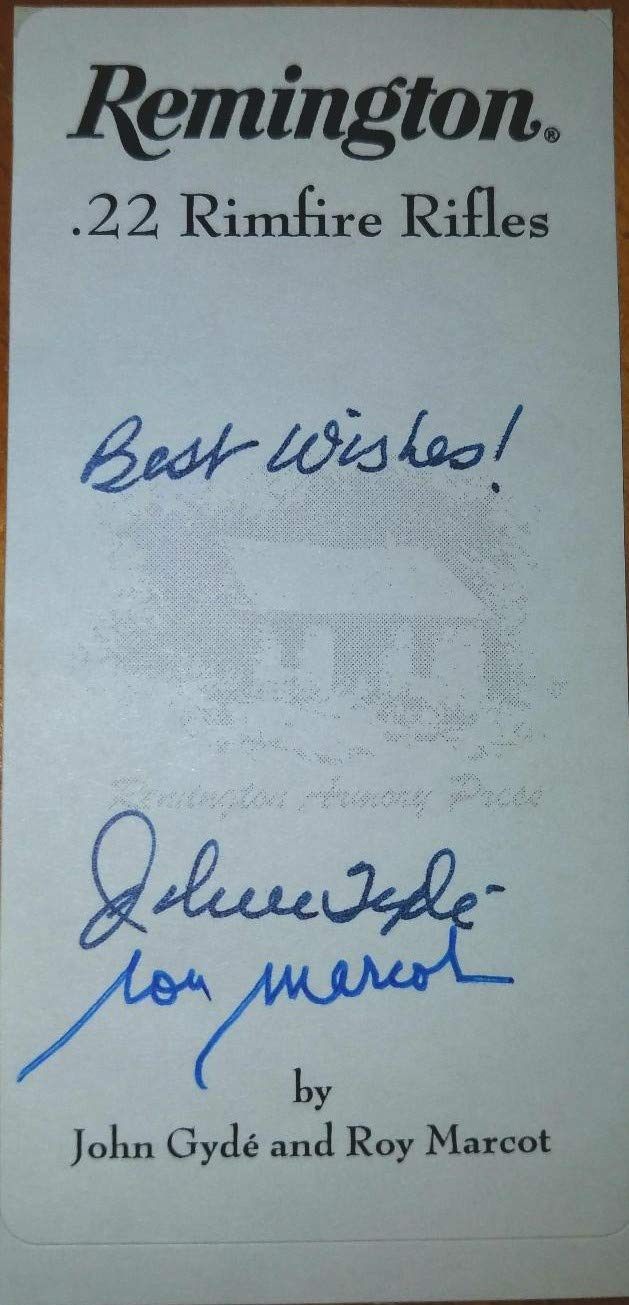 Remington®
.22 Rimfire Rifles
Best Wishes!
Remington Armory Press
John Gydé
Roy Marcot
by
John Gydé and Roy Marcot